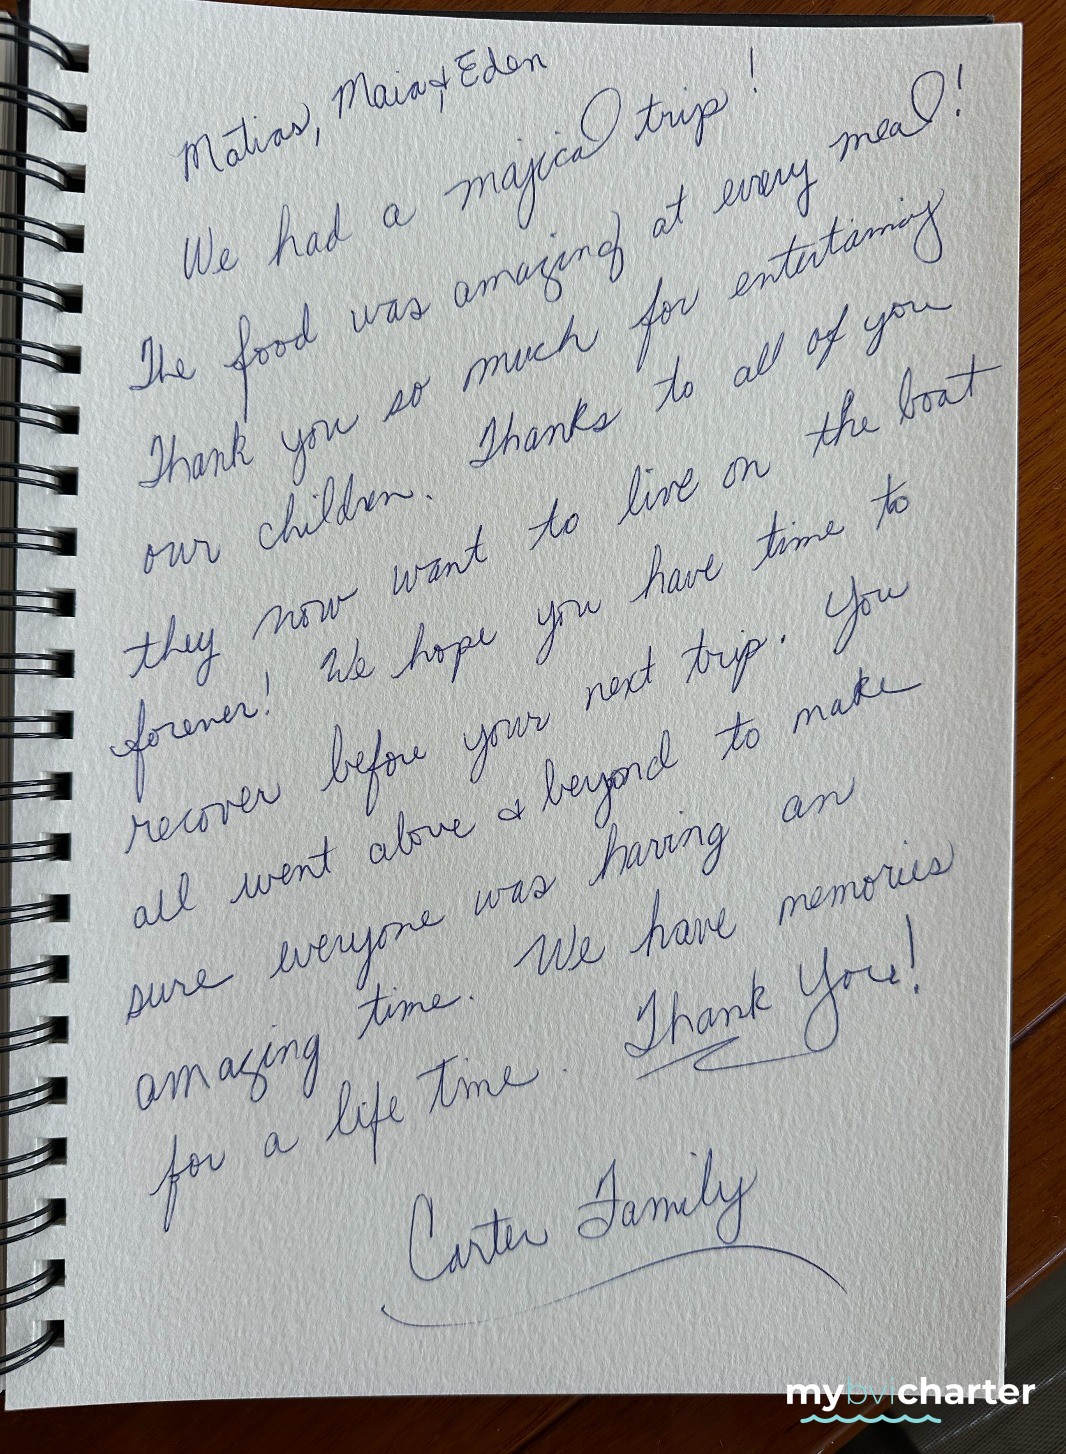 Matias, Maia & Eden
We had a majical trip!
The food was amazing at every meal!
Thank you so much for entertaining
our children. Thanks to all of you
they now want to live on the boat
forever! We hope you have time to
recover before your next trip. You
all went above & beyond to make
sure everyone was having an
amazing time. We have memories
for a life time. Thank You!
Carter Family
mybvicharter